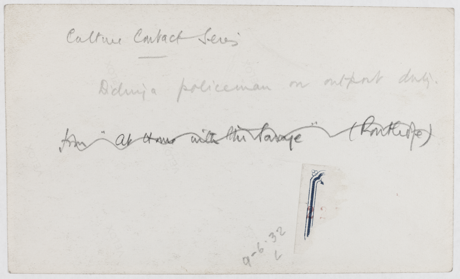 Culture Contact Series
Bdinga policeman on outpost duty.
from "At Home with the Savage" (Routledge)
9-6-32
L